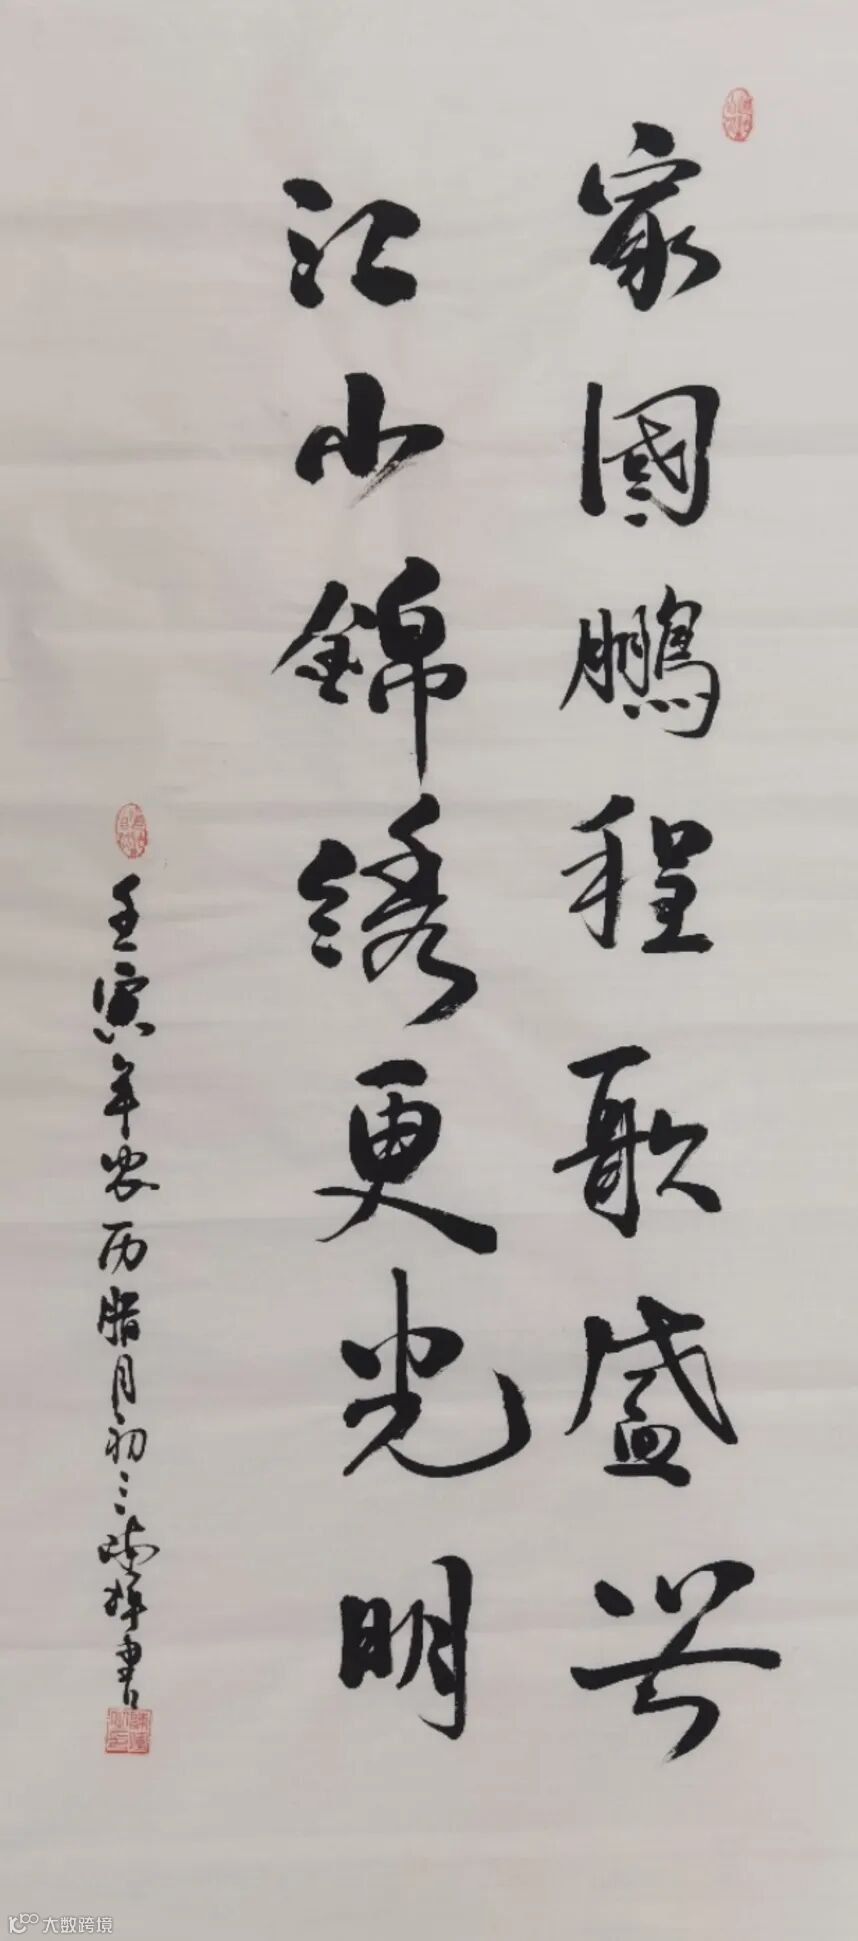 家國鵬程歌盛兴
江山錦绣更光明
壬寅年农历腊月初三陈辉书
大数跨境